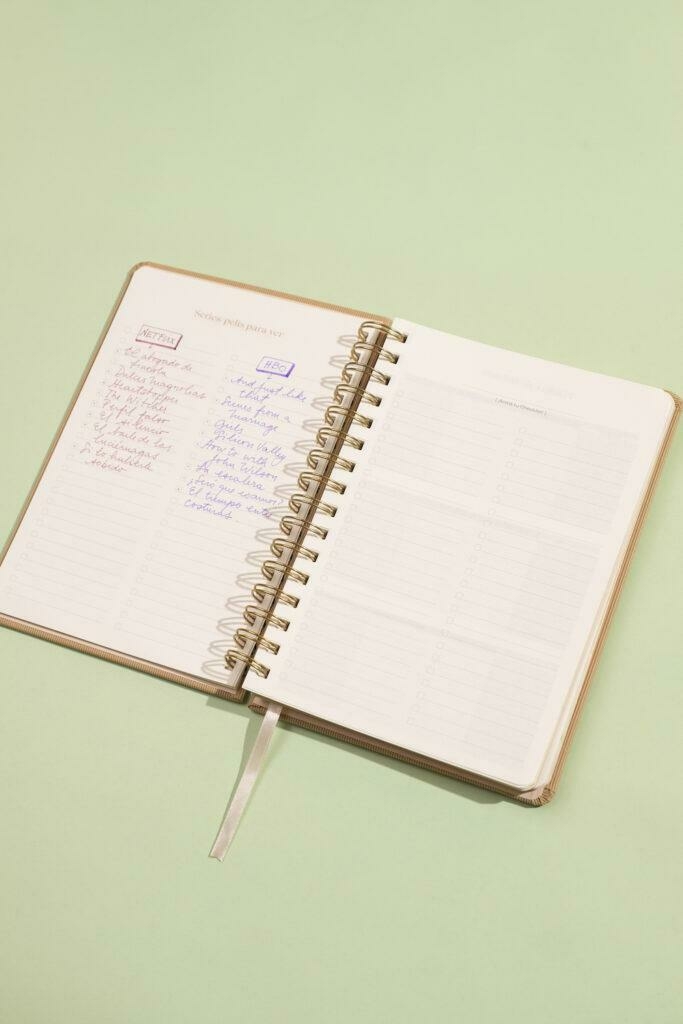 Series pelis para ver
NETFLIX
El abogado de
Lincoln
Dulces magnolias
Heartstopper
The Witcher
Perfil falso
El silencio
El baile de las
luciérnagas
Si lo hubiera
sabido
HBO
And just like
that
Scenes from a
marriage
Girls
Silicon Valley
How to with
John Wilson
La escalera
¿Pero que
El tiempo entre
costuras